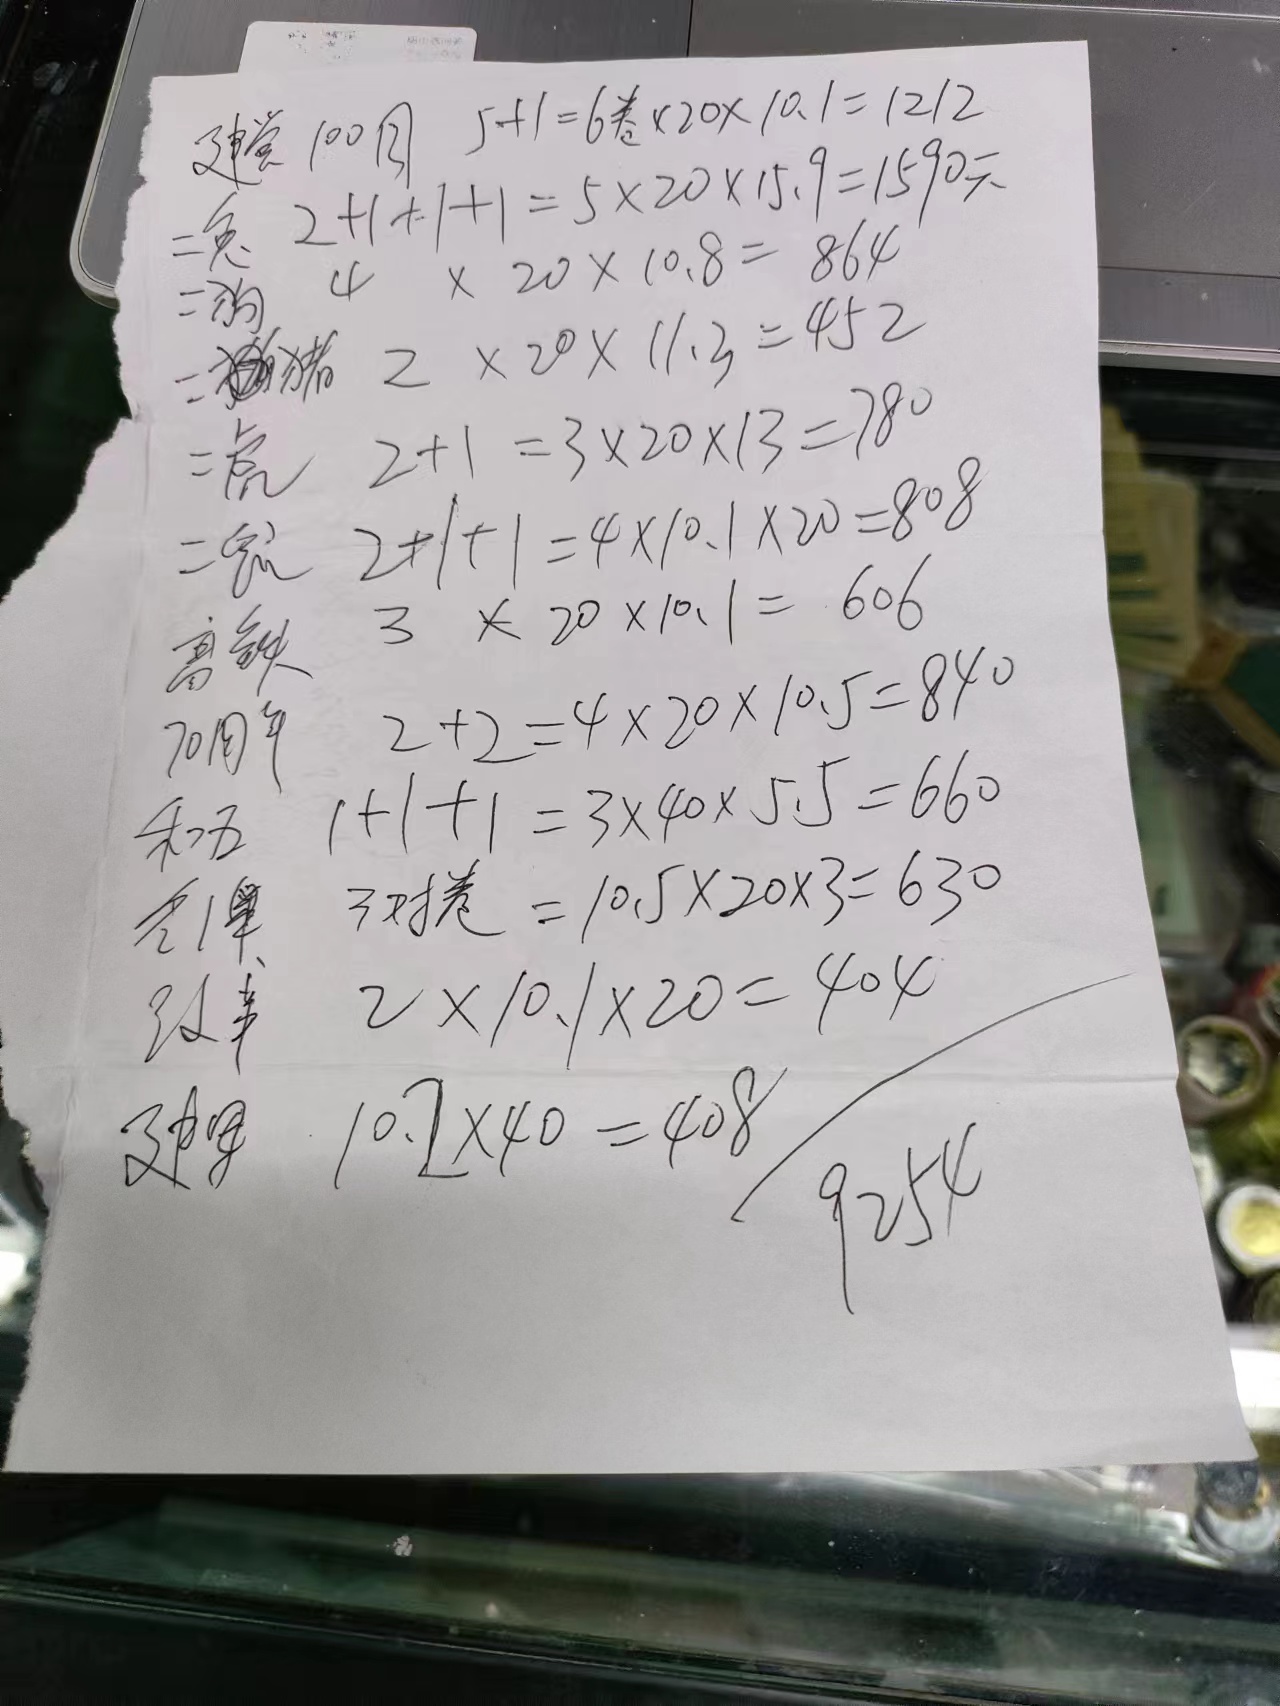 建党100周 5+1=6卷×20×10.1=1212
二兔 2+1+1+1=5×20×15.9=1590元
二狗 4 × 20×10.8= 864
二猪 2 ×20×11.3=452
二虎 2+1 =3×20×13=780
二 2+1+1=4×10.1×20=808
高铁 3 × 20×10.1= 606
70周年 2+2=4×20×10.5=840
和五 1+1+1 =3×40×5.5=660
3对卷 =10.5×20×3=630
改革 2×10.1×20=404
建军 10.2×40=408
9254